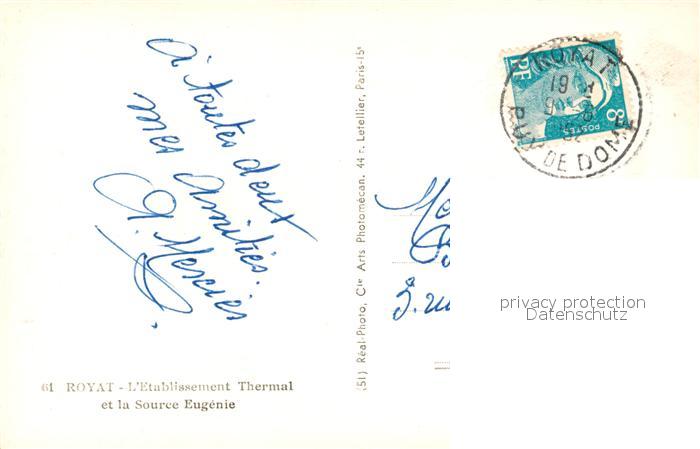 à toutes deux
mes amitiés.
61 ROYAT - L'Etablissement Thermal
et la Source Eugénie
(51) Réal-Photo, Cie Arts Photomécan. 44 r. Letellier, Paris-15e
ROYAT
19
PUY DE DOME
RF
8
POSTES
privacy protection
Datenschutz